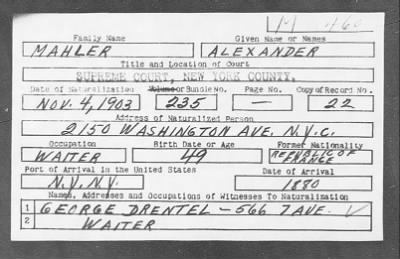 LM 460
Family Name Given Name or Names
MAHLER ALEXANDER
Title and Location of Court
SUPREME COURT, NEW YORK COUNTY.
Date of Naturalization Volume or Bundle No. Page No. Copy of Record No.
NOV. 4, 1903 235 — 22
Address of Naturalized Person
2150 WASHINGTON AVE. N.Y.C.
Occupation Birth Date or Age Former Nationality
WAITER 49 REPUBLIC OF FRANCE
Port of Arrival in the United States Date of Arrival
N.Y. N.Y. 1880
Names, Addresses and Occupations of Witnesses To Naturalization
1 GEORGE DRENTEL — 566 7 AVE.
2 WAITER